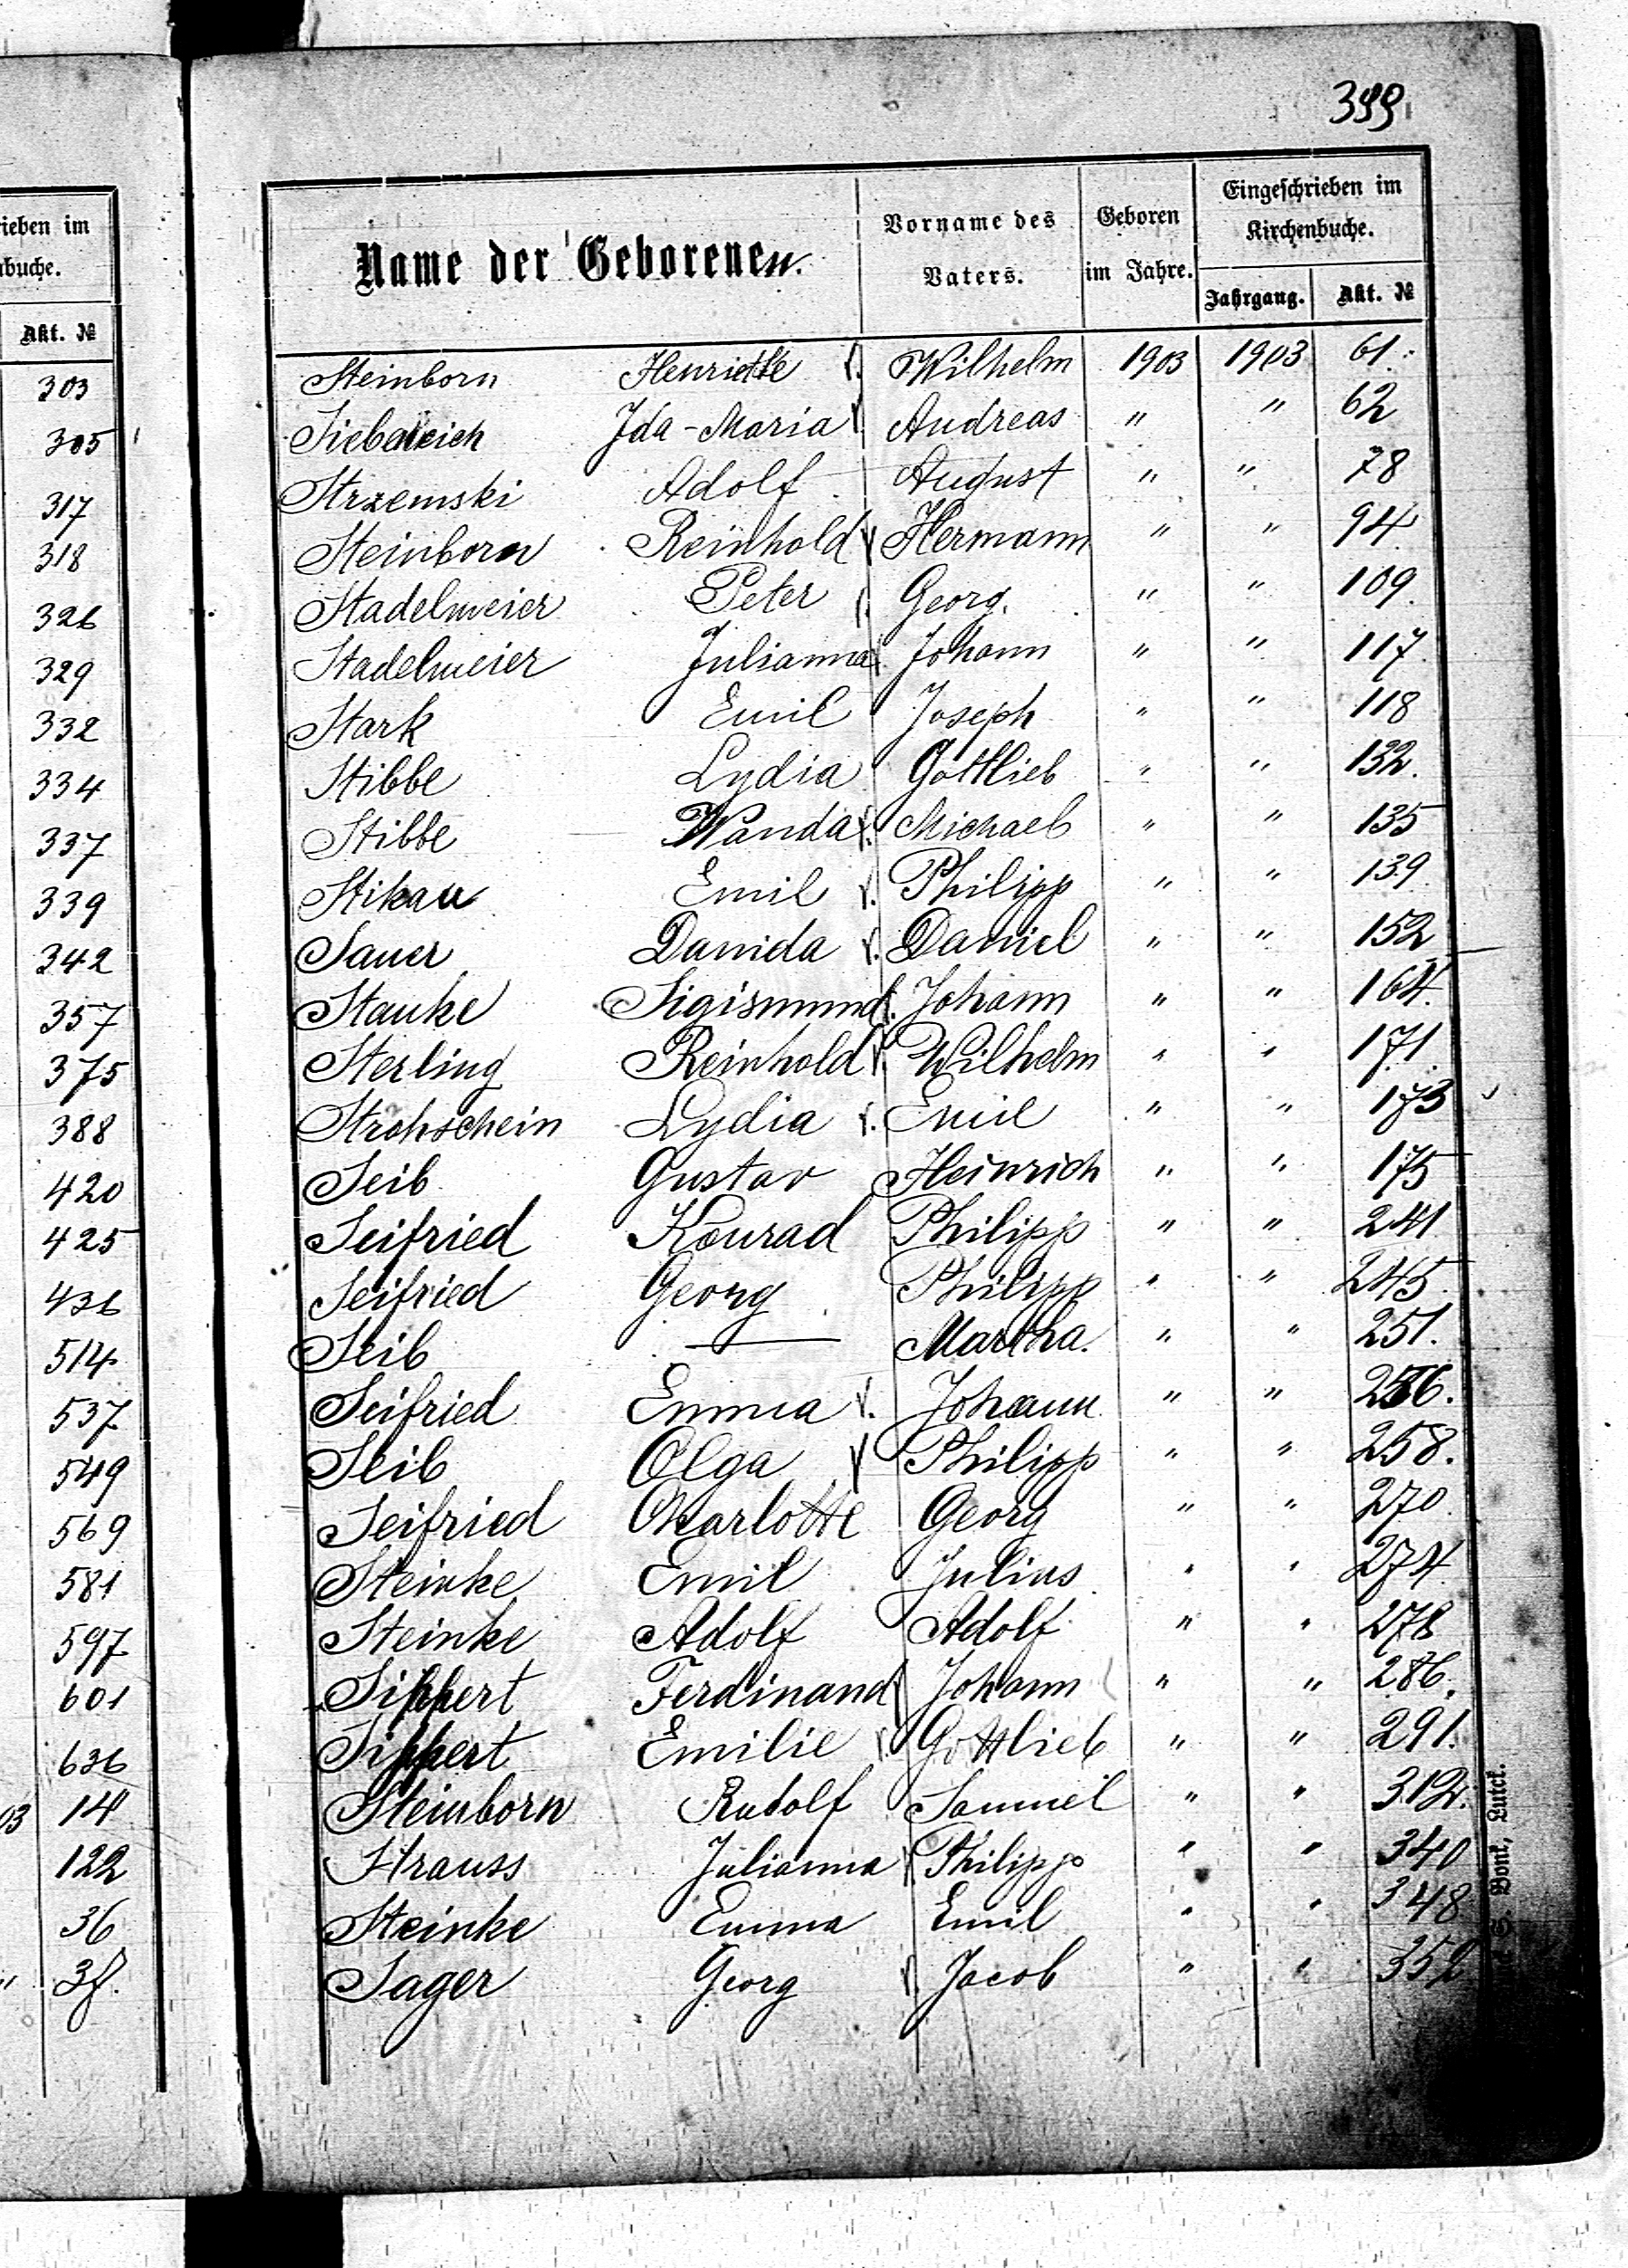 399
ieben im
buche.
Akt. №
303
305
317
318
326
329
332
334
337
339
342
357
375
388
420
425
436
514
537
549
569
581
597
601
636
03 14
122
36
" 38.
Name der Geborenen.
Vorname des Vaters.
Geboren im Jahre.
Eingeschrieben im Kirchenbuche.
Jahrgang. Akt. №
Steinborn Henriette Wilhelm 1903 1903 61.
Ida-Maria Andreas " " 62
Strzemski Adolf August " " 78
Steinborn Reinhold Hermann " " 94
Stadelmeier Peter Georg. " " 109.
Stadelmeier Julianna Johann " " 117.
Stark Emil Joseph " " 118
Stibbe Lydia Gottlieb " " 132.
Stibbe Wanda Michael " " 135
Stikau Emil Philipp " " 139.
Sauer Danida Daniel " " 152
Stanke Sigismund Johann " " 164.
Sterling Reinhold Wilhelm " " 171.
Strohschein Lydia Emil " " 173
Seib Gustav Heinrich " " 175
Seifried Konrad Philipp " " 241
Seifried Georg Philipp " " 245.
Seib — Martha. " " 251.
Seifried Emma Johann " " 256.
Seib Olga Philipp " " 258.
Seifried Charlotte Georg " " 270.
Steinke Emil Julius " " 274.
Steinke Adolf Adolf " " 278
Sippert Ferdinand Johann " " 286.
Sippert Emilie Gottlieb " " 291.
Steinborn Rudolf Samuel " " 312.
Strauss Julianna Philipp " " 340
Steinke Emma Emil " " 348
Sager Georg Jacob " " 352
Bonk, Luck.